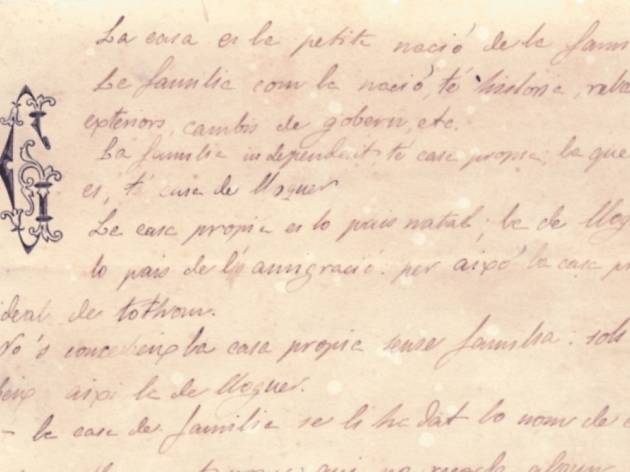 La casa es la petita nació de la fami
La familia com la nació, té historia, rela
exteriors, cambis de gobern, etc.
La familia independent té casa propia; la que
es, té casa de lloguer
La casa propia es lo pais natal; la de llog
lo pais de l'emigració: per això la casa pr
ideal de tothom.
No's concebeix la casa propia sense familia: sols
beix aixi la de lloguer.
— la casa de familia se li ha dat lo nom de c